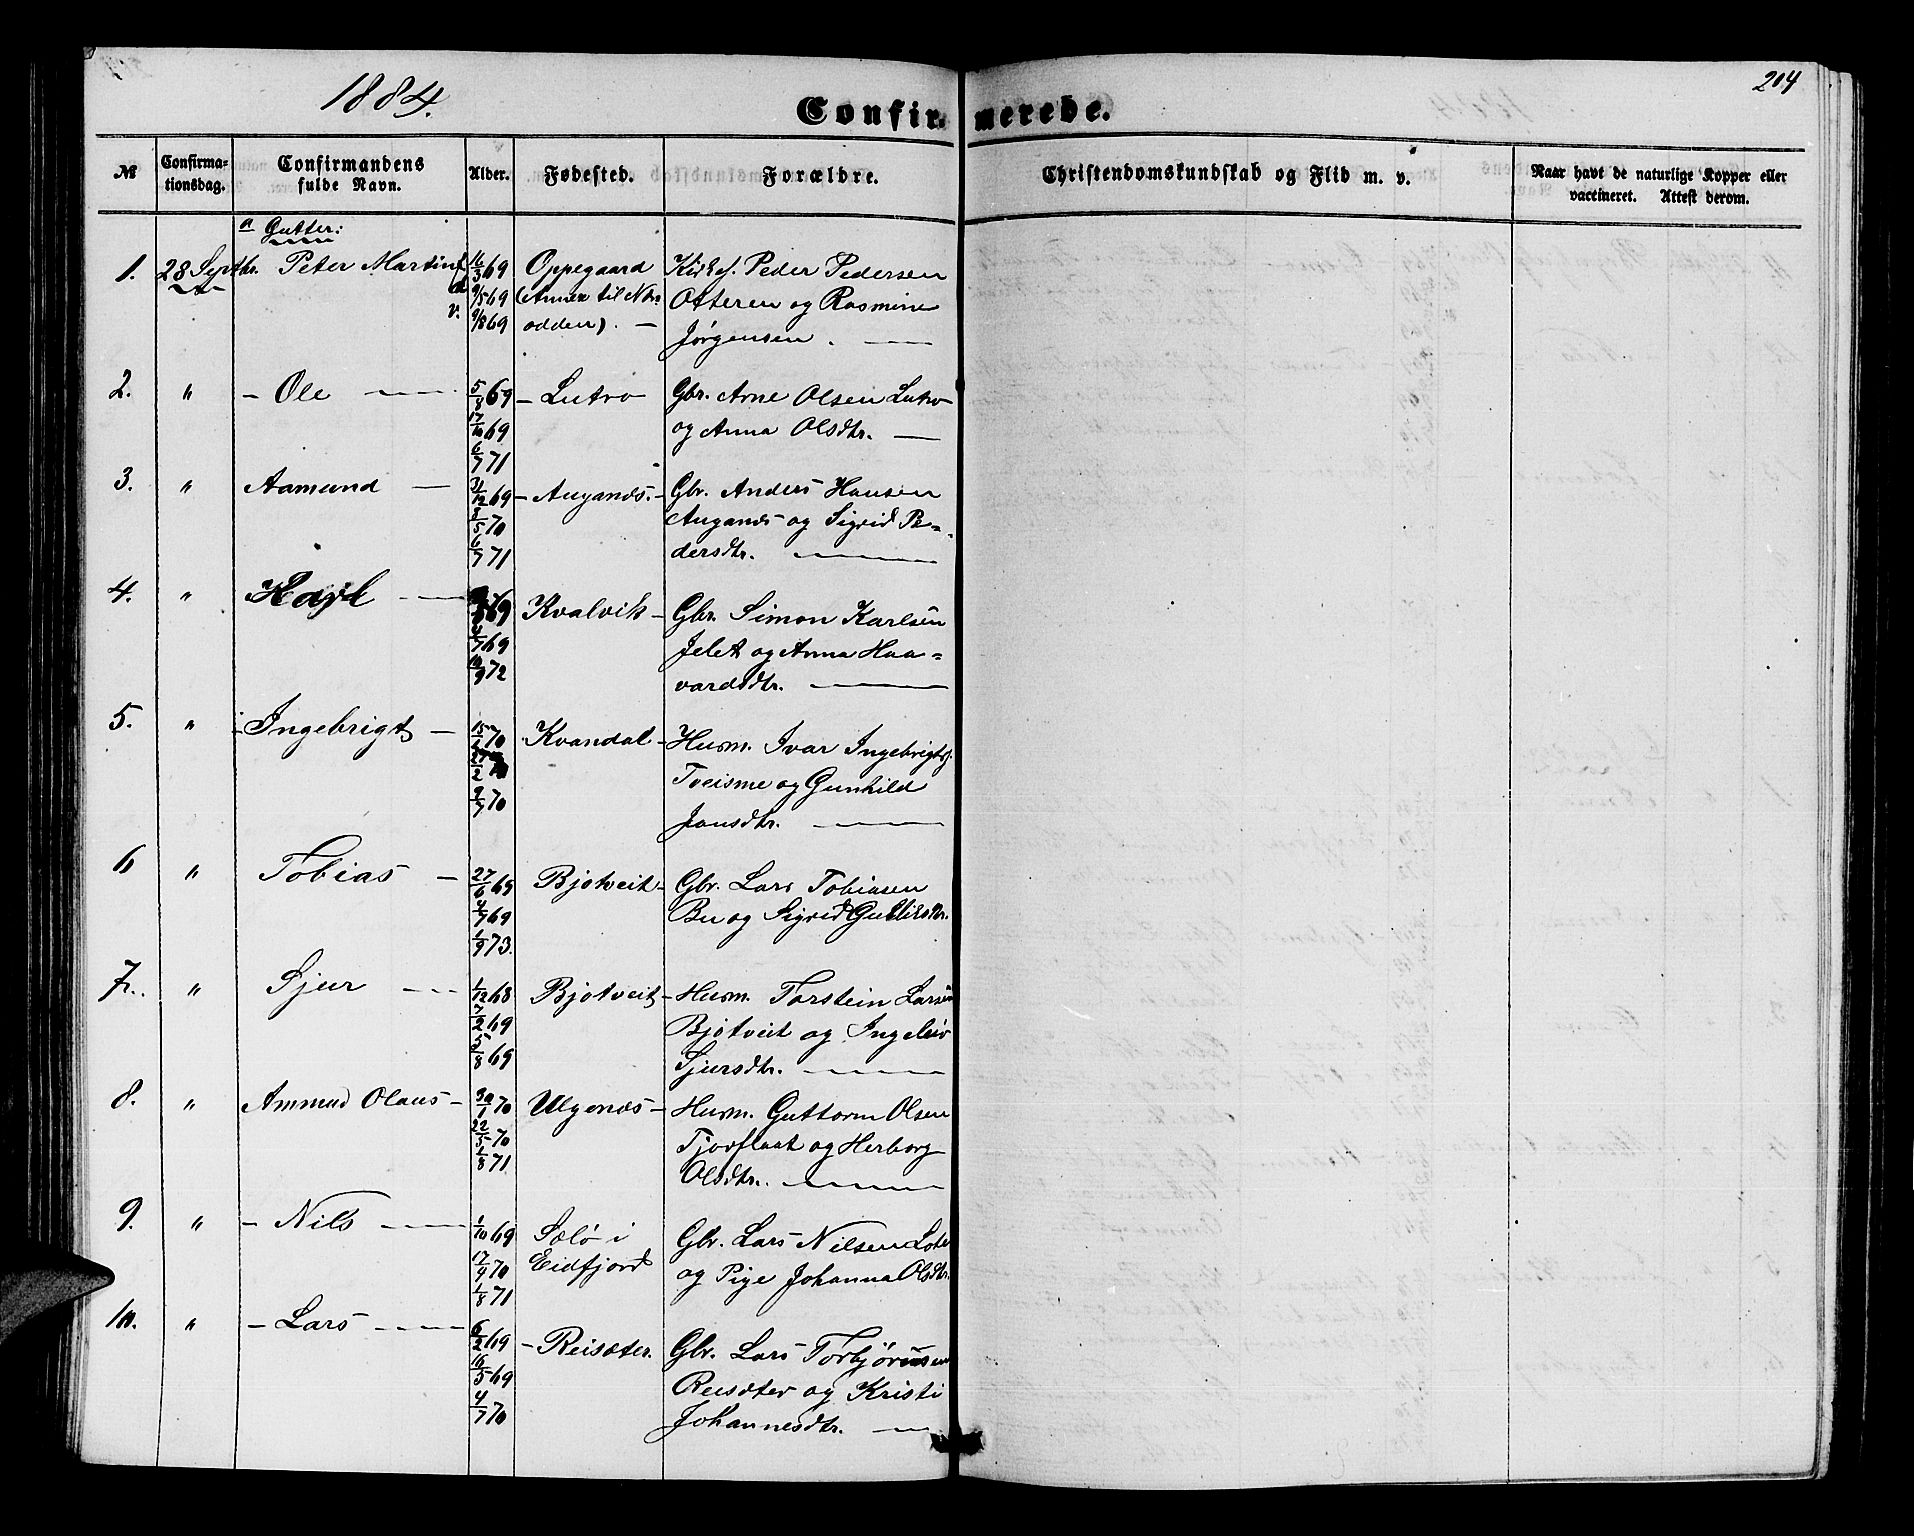 1884.
Confirmerede.
204
№
Confirmationsdag.
Confirmandens fulde Navn.
Alder.
Fødested.
Forældre.
Christendomskundskab og Flid m. v.
Naar havt de naturlige Kopper eller vaccineret. Attest derom.
a Gutter:
1. 28 Septbr. Peter Martin f. 16/3 69 Oppegaard Kirkes. Peder Pedersen
d. 9/5 69 (Annex til Næs- Otteren og Rasmine
v. 9/8 69 odden). — Jørgensen. —
2. " - Ole — 5/8 69 - Lutro Gbr. Arne Olsen Lutro
17/10 69 og Anna Olsdtr. —
6/7 71
3. " Aamund — 31/12 69 - Auganæs. - Gbr. Anders Hansen
8/5 70 Auganæs og Sigrid Pe-
6/7 71 dersdtr. —
4. " Karl — 69 Kvalvik - Gbr. Simon Karlsen
4/7 69 Jelet og Anna Haa-
10/9 72 vardsdtr. —
5. " - Ingebrigt — 15/1 70 Kvandal - Husm. Ivar Ingebrigts.
27/2 70 Tveisme og Gunhild
9/7 70 Jonsdtr. —
6 " Tobias — 27/6 69 Bjotveit - Gbr. Lars Tobiasen
4/7 69 Bu og Sigrid Gulliksdtr.
1/9 73.
7. " Sjur — 1/12 68 Bjotveit - Husm. Torstein Larsen
7/2 69 Bjotveit og Ingeleiv
5/8 69 Sjursdtr. —
8. " Ammund Olaus - 30/1 70 Ulgenæs - Husm. Guttorm Olsen
22/5 70 Tjorflaat og Herborg
1/8 71 Olsdtr. —
9. " - Nils — 1/10 69 Sælø i Gbr. Lars Nilsen Lote
17/4 70 Eidfjord og Pige Johanna Olsdtr.
1/8 71
10. " - Lars — 6/2 69 - Reisæter. Gbr. Lars Torbjørnsen
16/5 69 Reisæter og Kristi
4/7 70 Johannesdtr. —